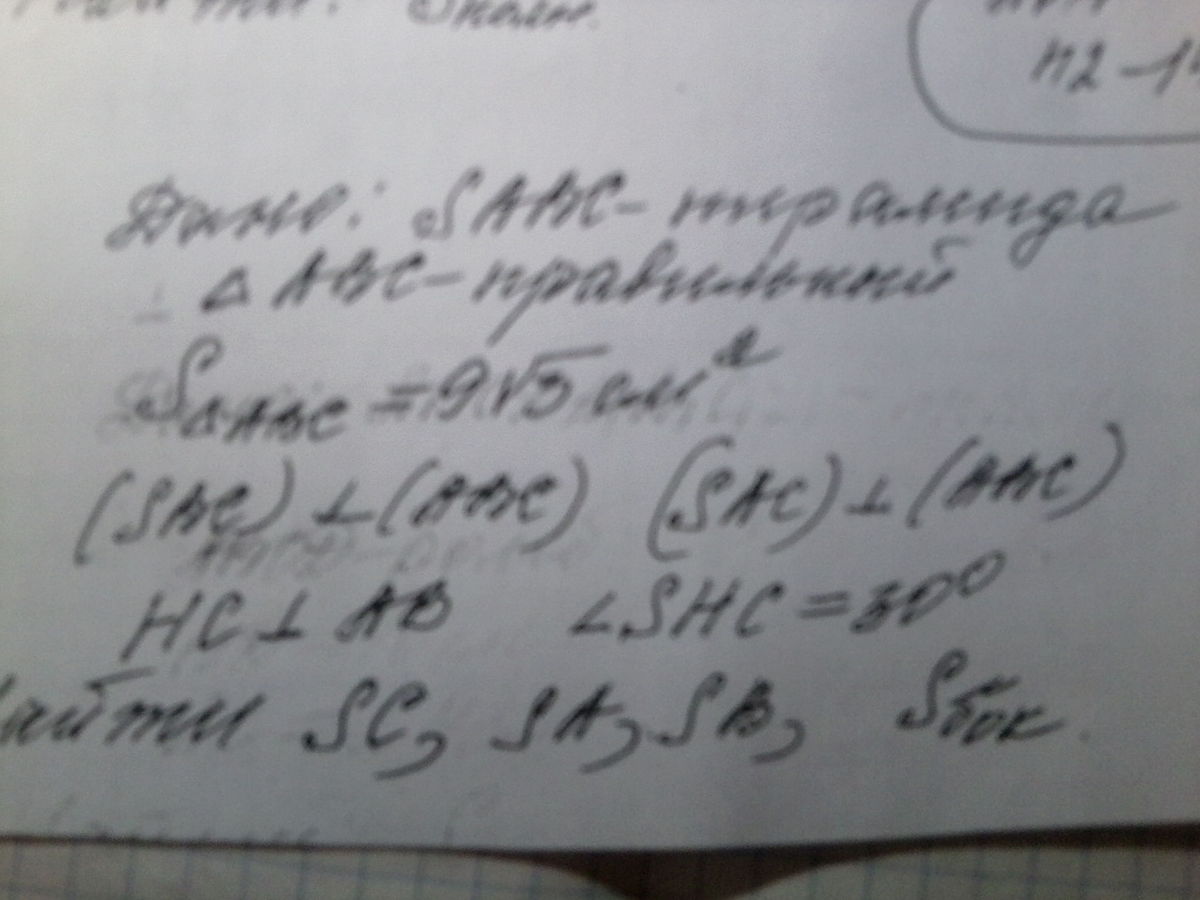 Sполн.
H2-1
Дано: SABC - пирамида
△ABC - правильный
S△ABC = 9√3 см²
(SBC) ⊥ (ABC) (SAC) ⊥ (ABC)
HC ⊥ AB ∠SHC = 30°
айти SC, SA, SB, Sбок.